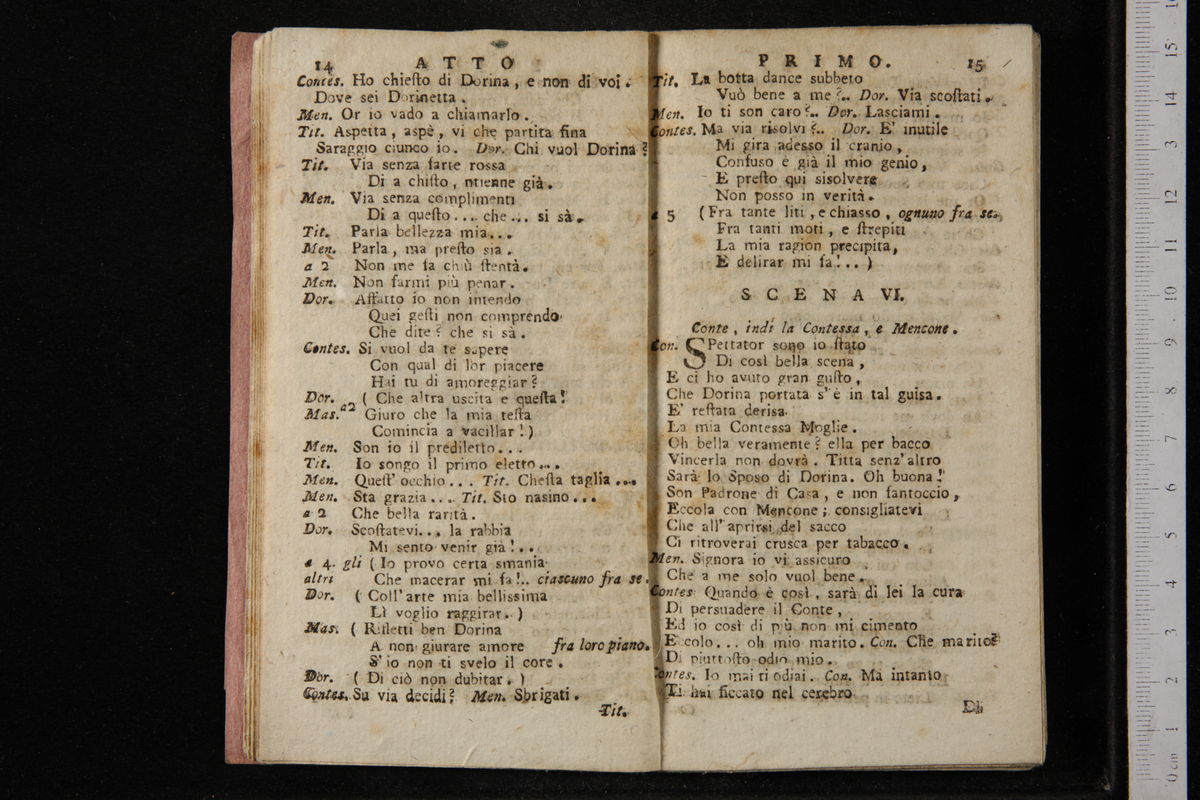 14 ATTO
Contes. Ho chiesto di Dorina, e non di voi.
Dove sei Dorinetta.
Men. Or io vado a chiamarlo.
Tit. Aspetta, aspè, vi che partita fina
Saraggio ciunco io. Dor. Chi vuol Dorina?
Tit. Via senza farte rossa
Di a chisto, ntienne già.
Men. Via senza complimenti
Di a questo.... che... si sà.
Tit. Parla bellezza mia...
Men. Parla, ma presto sia.
a 2 Non me fa chiù stentà.
Men. Non farmi più penar.
Dor. Affatto io non intendo
Quei gesti non comprendo
Che dite? che si sà.
Contes. Si vuol da te sapere
Con qual di lor piacere
Hai tu di amoreggiar?
Dor. ( Che altra uscita e questa!
Mas. a2 Giuro che la mia testa
Comincia a vacillar!)
Men. Son io il prediletto...
Tit. Io songo il primo eletto...
Men. Quest' occhio... Tit. Chesta taglia...
Men. Sta grazia.... Tit. Sto nasino...
a 2 Che bella rarità.
Dor. Scostatevi... la rabbia
Mi sento venir già!...
a 4. gli ( Io provo certa smania
altri Che macerar mi fa!.. ciascuno fra se.
Dor. ( Coll' arte mia bellissima
Lì voglio raggirar. )
Mas. ( Rifletti ben Dorina
A non giurare amore fra loro piano.
S' io non ti svelo il core.
Dor. ( Di ciò non dubitar. )
Contes. Su via decidi? Men. Sbrigati.
Tit.
PRIMO. 15
Tit. La botta dance subbeto
Vuò bene a me?.. Dor. Via scostati.
Men. Io ti son caro?.. Dor. Lasciami.
Contes. Ma via risolvi?.. Dor. E' inutile
Mi gira adesso il cranio,
Confuso è già il mio genio,
E presto qui sisolvere
Non posso in verità.
a 5 (Fra tante liti, e chiasso, ognuno fra se.
Fra tanti moti, e strepiti
La mia ragion precipita,
E delirar mi fa!..)
SCENA VI.
Conte, indi la Contessa, e Mencone.
Con. SPettator sono io stato
Di così bella scena,
E ci ho avuto gran gusto,
Che Dorina portata s' è in tal guisa.
E' restata derisa
La mia Contessa Moglie.
Oh bella veramente? ella per bacco
Vincerla non dovrà. Titta senz' altro
Sarà lo Sposo di Dorina. Oh buona!
Son Padrone di Casa, e non fantoccio,
Eccola con Mencone; consigliatevi
Che all' aprirsi del sacco
Ci ritroverai crusca per tabacco.
Men. Signora io vi assicuro
Che a me solo vuol bene.
Contes Quando è così, sarà di lei la cura
Di persuadere il Conte,
Ed io così di più non mi cimento
E colo... oh mio marito. Con. Che marito?
Di piuttosto odio mio.
Contes. Io mai ti odiai. Con. Ma intanto
Ti hai ficcato nel cerebro
Di